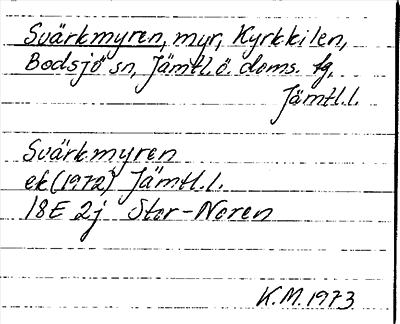 Svärkmyren, myr, Kyrkkilen,
Bodsjö sn, Jämtl. ö. doms. fg,
Jämtl.l.
Svärkmyren
ek (1972) Jämtl.l.
18E 2j Stor-Noren
K.M. 1973